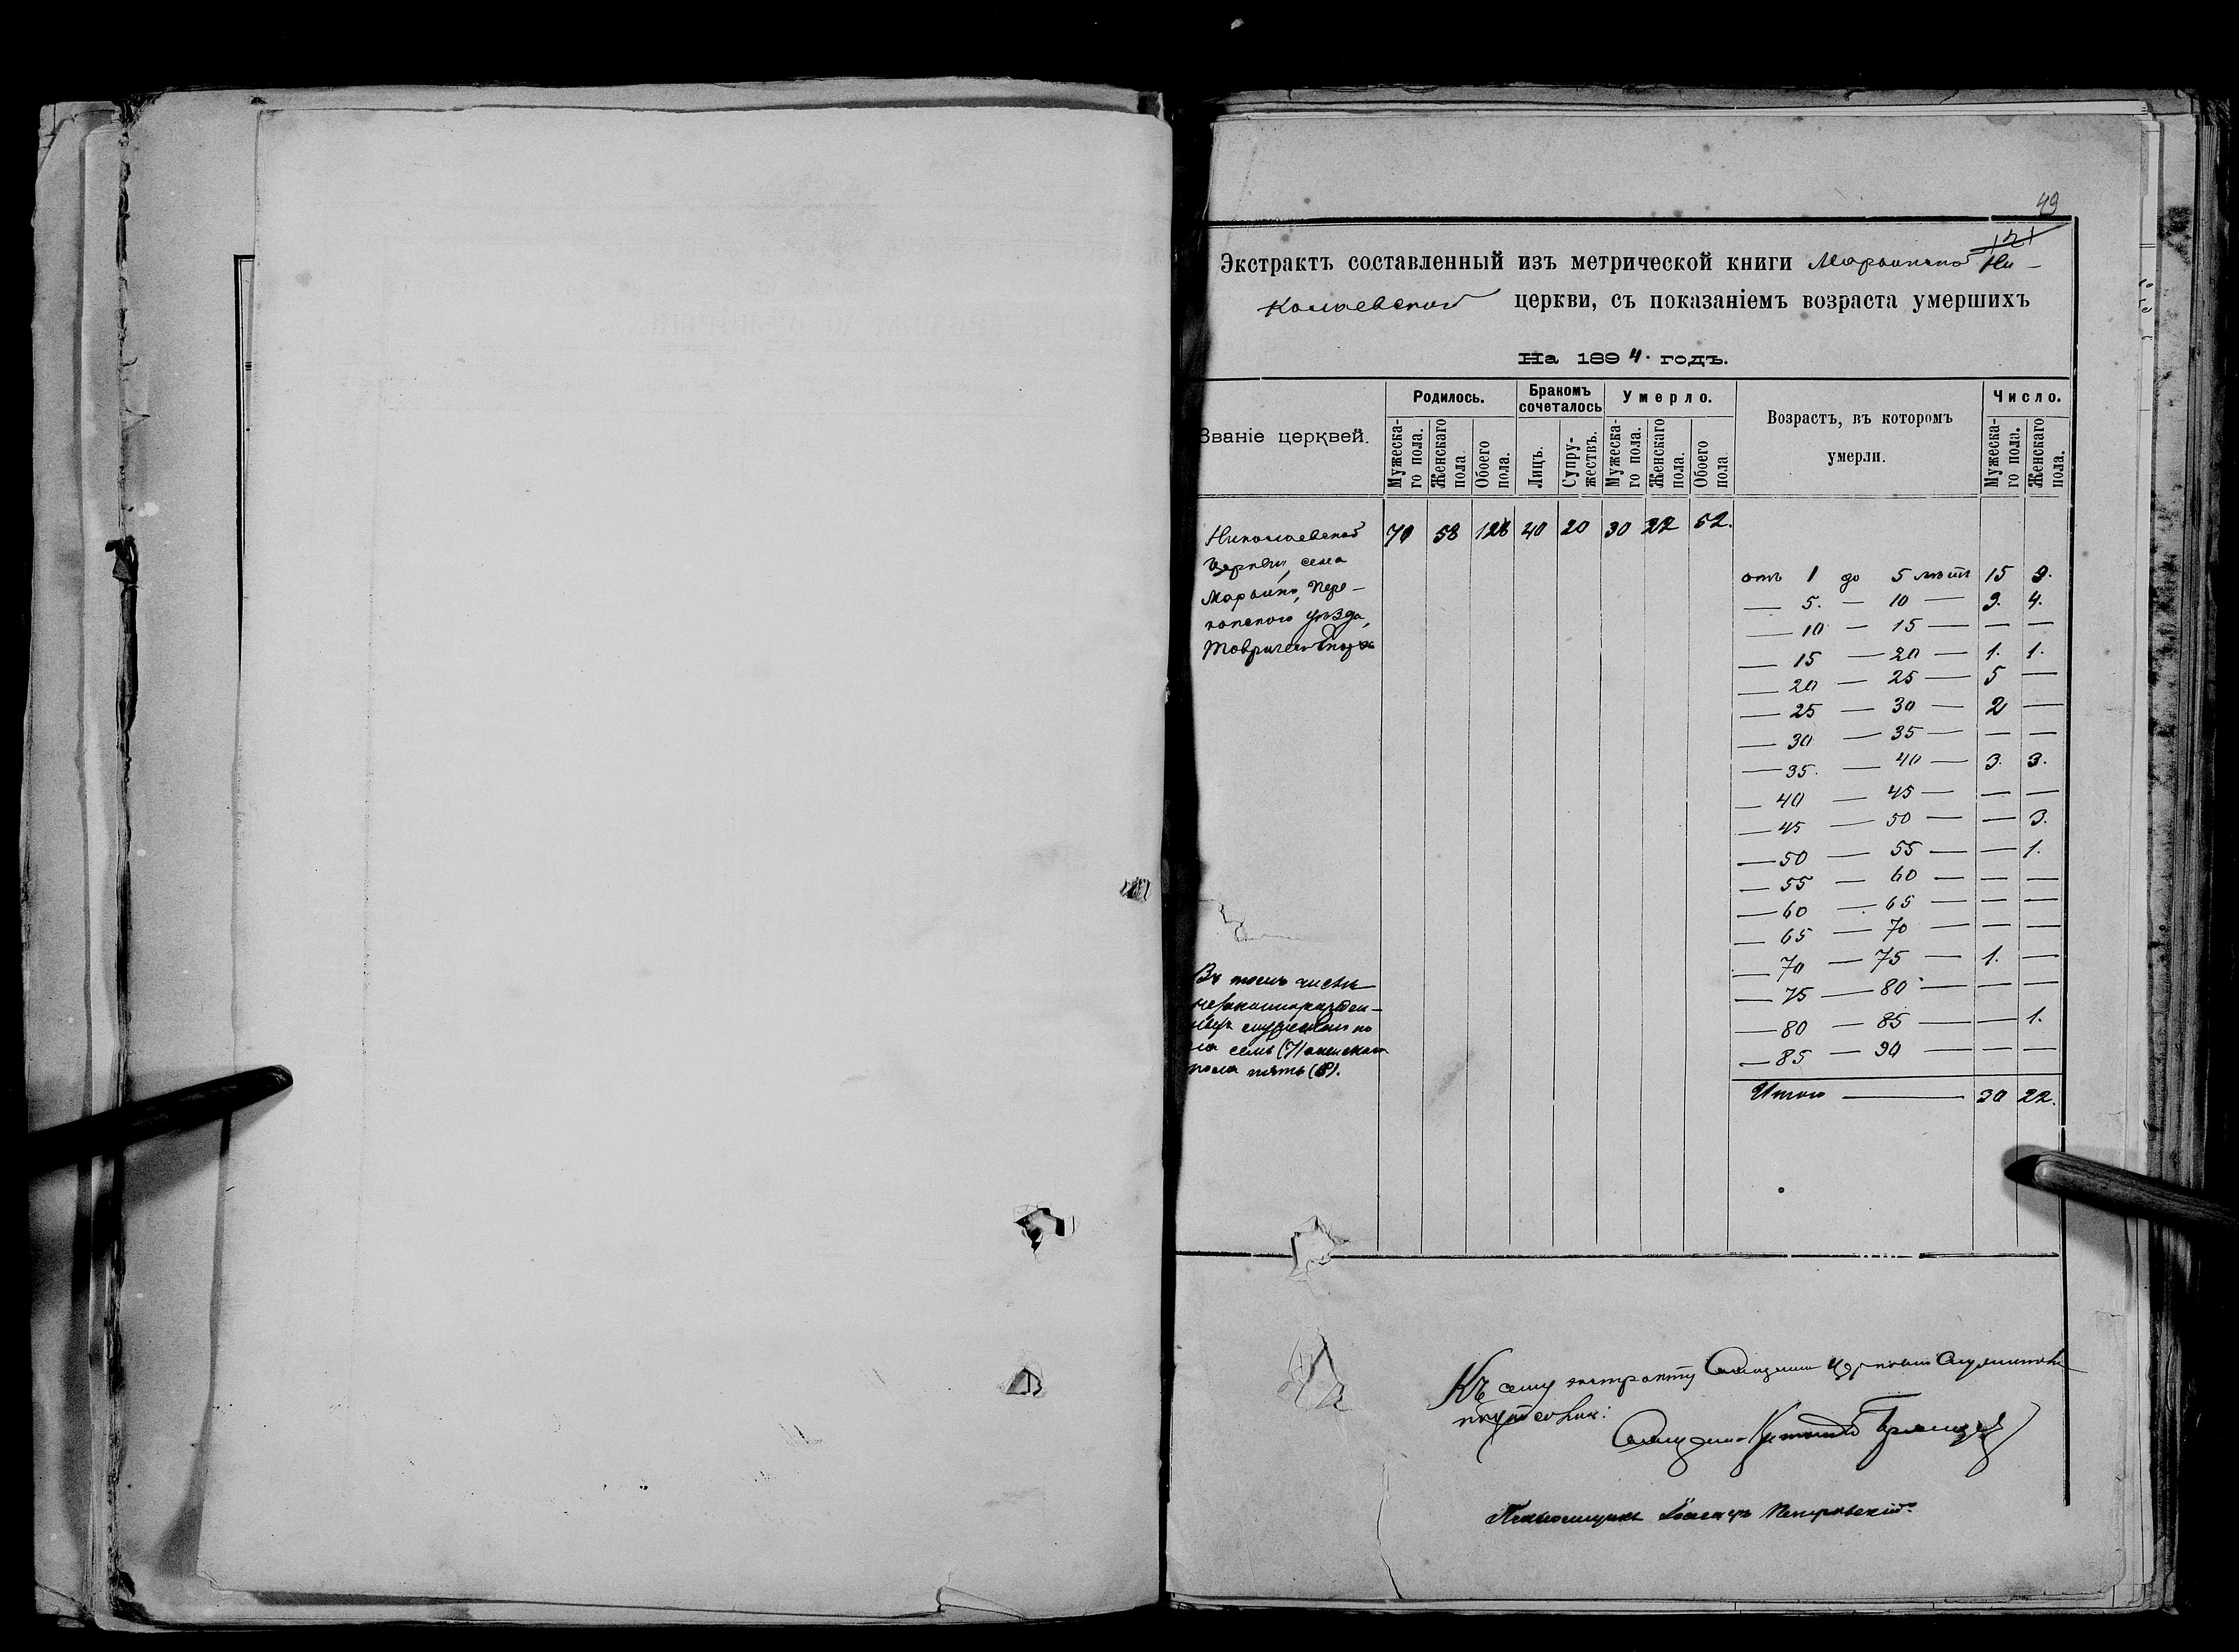 49
121
Экстрактъ составленный изъ метрической книги Марьинской Ни-
колаевской церкви, съ показаніемъ возраста умершихъ
На 1894. годъ.
Званіе церквей.
Родилось.
Бракомъ сочеталось
Умерло.
Возрастъ, въ которомъ умерли.
Число.
Мужеска-го пола.
Женскаго пола
Обоего пола.
Лицъ.
Супру-жествъ.
Мужеска-го пола.
Женскаго пола.
Обоего пола
Мужеска-го пола.
Женскаго пола.
Николаевской 70 58 128 40 20 30 22 52.
Церкви, села
Марьино, Пере-
копского уѣзда,
отъ 1 до 5 лѣтъ 15 9.
— 5. — 10 — 3. 4.
— 10 — 15 — — —
— 15 — 20 — 1. 1.
— 20 — 25 — 5 —
— 25 — 30 — 2 —
— 30 — 35 — — —
— 35. — 40 — 3. 3.
— 40 — 45 — — —
— 45 — 50 — — 3.
— 50 — 55 — — 1.
— 55 — 60 — — —
— 60 — 65 — — —
— 65 — 70 — — —
— 70 — 75 — 1. —
— 75 — 80 — — —
— 80 — 85 — — 1.
— 85 — 90 — — —
Итого — 30 22.
Въ томъ числѣ
незаконнорожден-
ныхъ мужескаго по
ла семь (7) женскаго
пола пять (5).
Къ сему экстракту
Священникъ
Псаломщикъ Петровскій.